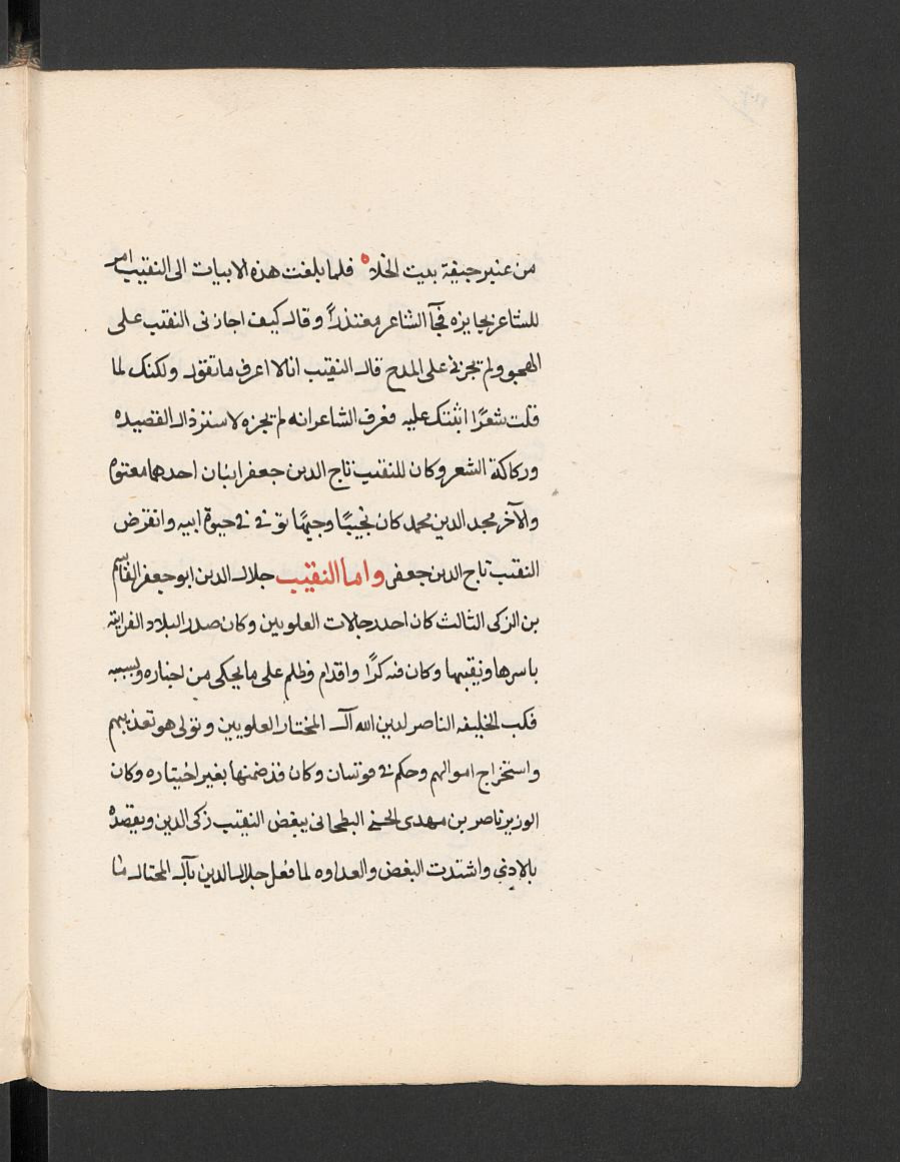 من عنبر جيفة بيت الخلاه فلما بلغت هذه الابيات الى النقيب امر
للشاعر بجايزه فجآ الشاعر معتذراً وقال كيف اجازنى النقيب على
الهجو ولم تجزنى على المدح قال النقيب انا لا اعرف ما تقول ولكنك لما
قلت شعرًا اثبتك عليه فعرف الشاعر انه لم يجزه لاسترذال القصيده
وركاكة الشعر وكان للنقيب تاج الدين جعفر ابنان احدهما معتوه
والآخر مجد الدين محمد كان نجيبًا وجيهًا توفى فى حيوة ابيه وانقرض
النقيب تاج الدين جعفر واما النقيب جلال الدين ابو جعفر القاسم
بن الزكى الثالث كان احد رجالات العلويين وكان صدر البلاد الفراتيه
باسرها ونقيبها وكان فيه كرًا واقدام وظلم على ما يحكى من اخباره وبسببه
نكب الخليفه الناصر لدين الله آل المختار العلويين وتولى هو تعذيبهم
واستخراج اموالهم وحكم فى قوتسان وكان قد ضمنها بغير اختياره وكان
الوزير ناصر بن مهدى الحسنى البطحانى يبغض النقيب زكى الدين ويقصده
بالاذى واشتدت البغض والعداوه لما فعل جلال الدين بآل المختار ما